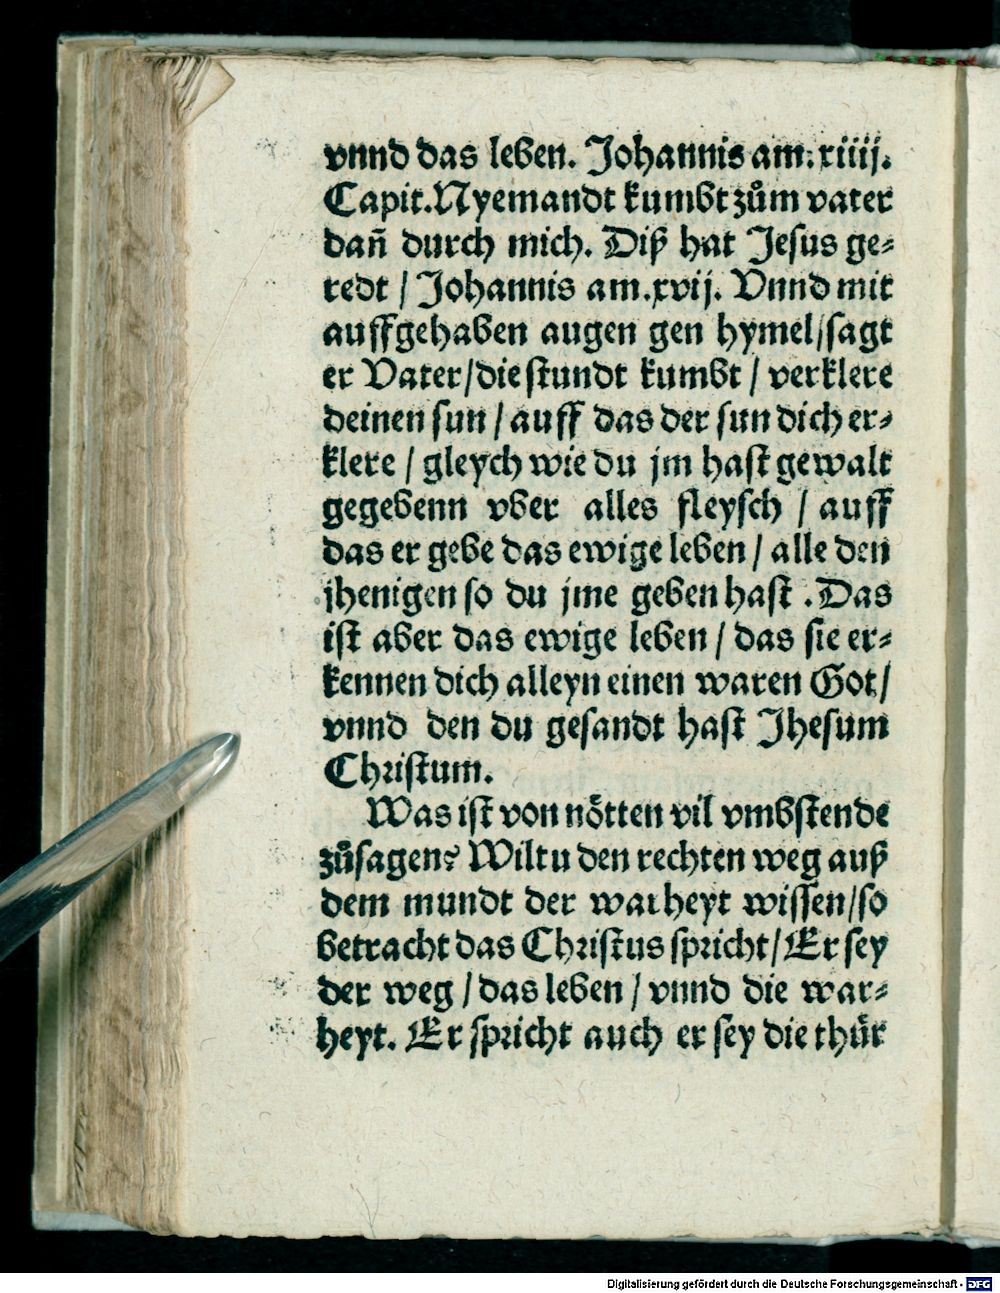 vnnd das leben. Johannis am. xiiij.
Capit. Nyemandt kumbt zům vater
dañ durch mich. Diß hat Jesus ge⸗
redt / Johannis am. xvij. Vnnd mit
auffgehaben augen gen hymel / sagt
er Vater / die stundt kumbt / verklere
deinen sun / auff das der sun dich er⸗
klere / gleych wie du jm hast gewalt
gegebenn vber alles fleysch / auff
das er gebe das ewige leben / alle den
jhenigen so du jme geben hast . Das
ist aber das ewige leben / das sie er⸗
kennen dich alleyn einen waren Got /
vnnd den du gesandt hast Jhesum
Christum.
Was ist von nötten vil vmbstende
zůsagen? Wiltu den rechten weg auß
dem mundt der warheyt wissen / so
betracht das Christus spricht / Er sey
der weg / das leben / vnnd die war⸗
heyt. Er spricht auch er sey die thür
Digitalisierung gefördert durch die Deutsche Forschungsgemeinschaft - DFG